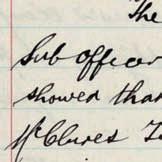 the
Sub officer
showed that
McClures